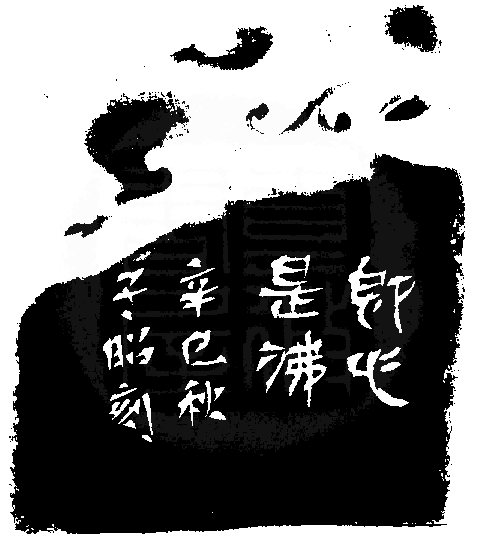 即心
是佛
辛巳秋
子昭刻